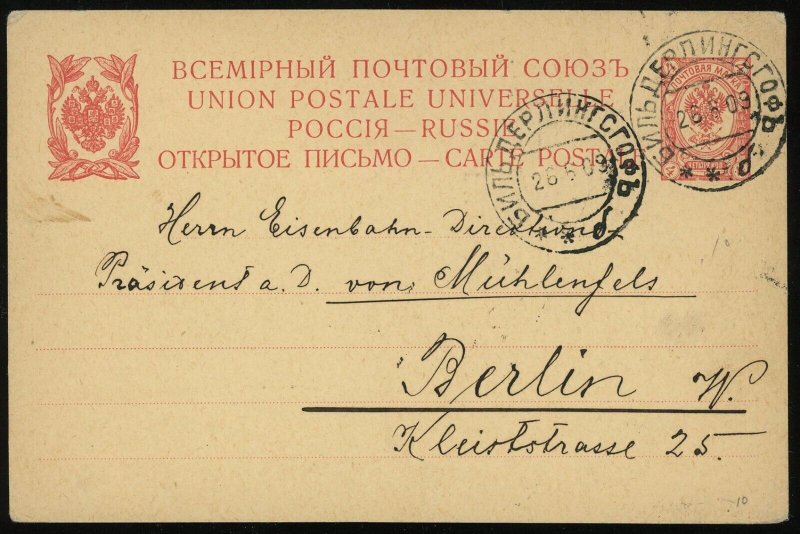 ВСЕМІРНЫЙ ПОЧТОВЫЙ СОЮЗЪ
UNION POSTALE UNIVERSELLE
РОССІЯ — RUSSIE
ОТКРЫТОЕ ПИСЬМО — CARTE POSTALE
ПОЧТОВАЯ МАРКА
БИЛЬДЕРЛИНГСГОФЪ
26 6 09
б
БИЛЬДЕРЛИНГСГОФЪ
26 6 09
б
Herrn Eisenbahn-Direktions-
Präsident a. D. von Mühlenfels
Berlin W.
Kleiststrasse 25.
10
10